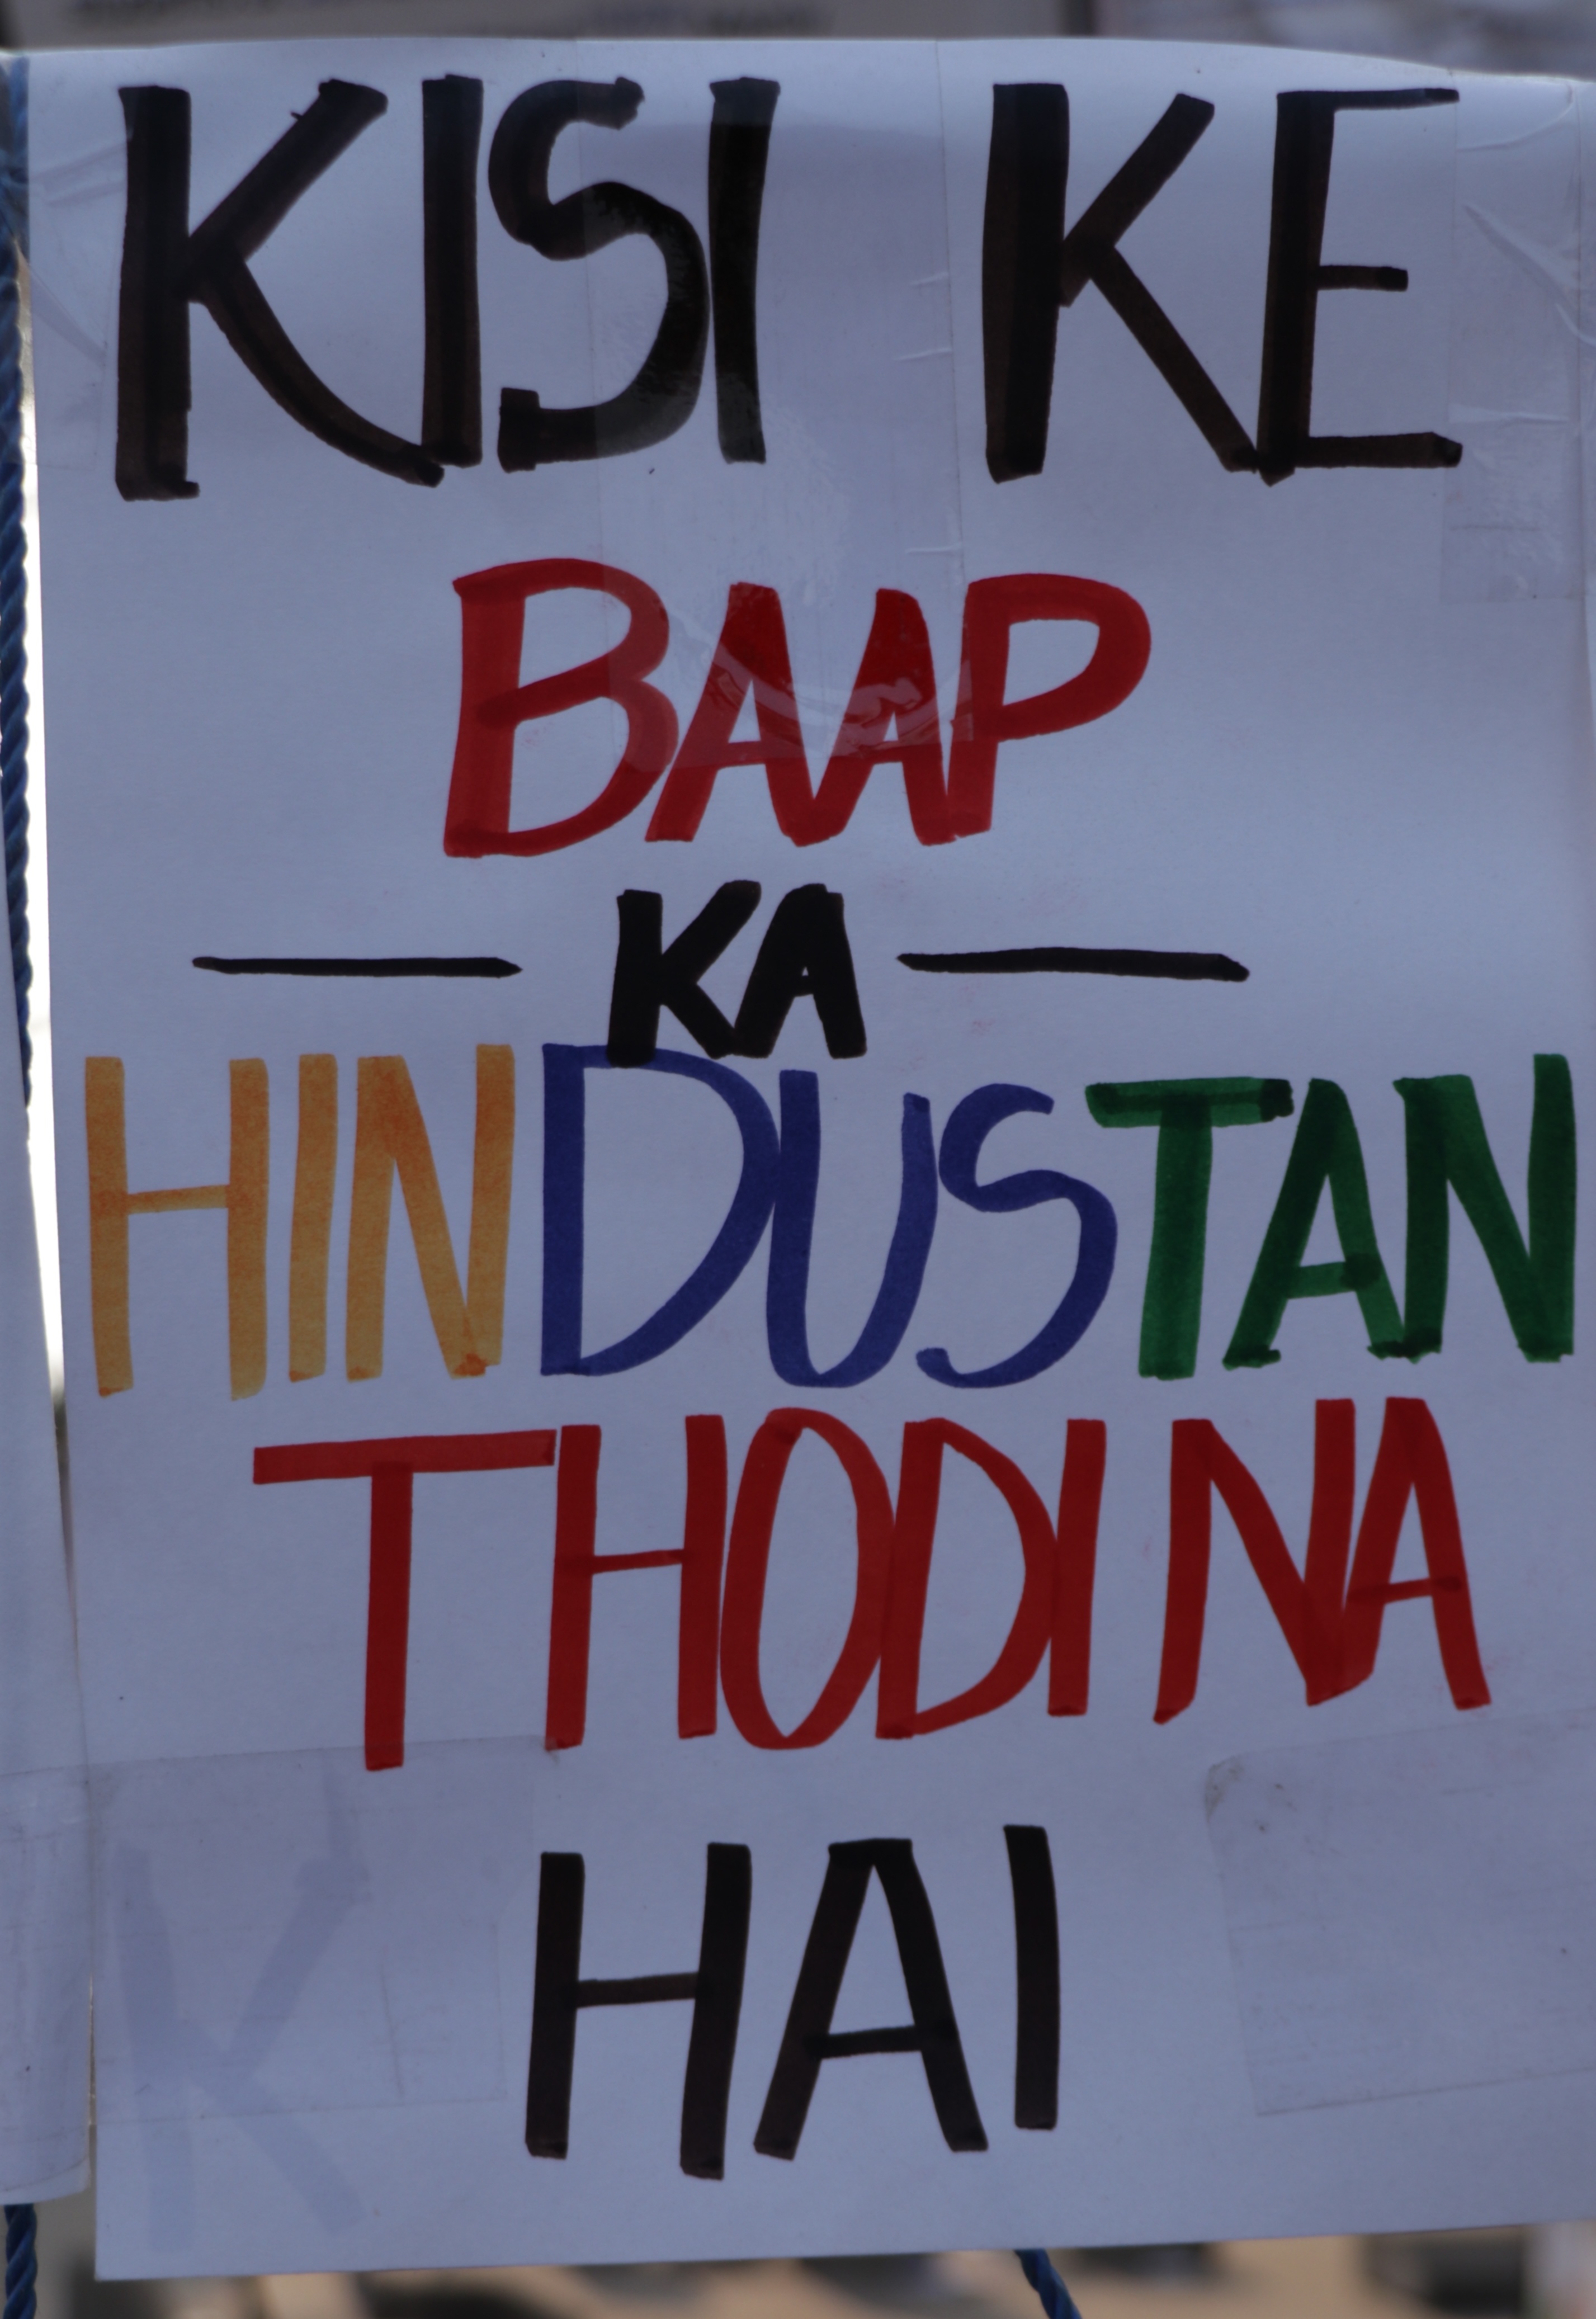 KISI KE
BAAP
— KA —
HINDUSTAN
THODI NA
HAI